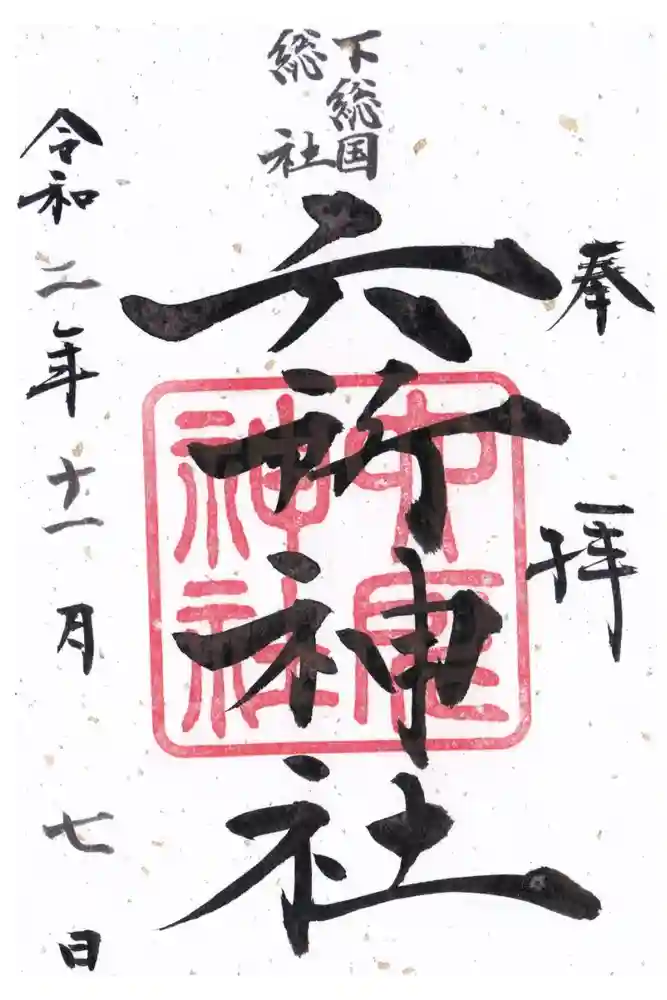 奉拝
下総国
総社
六所神社
六所
神社
令和二年十一月七日